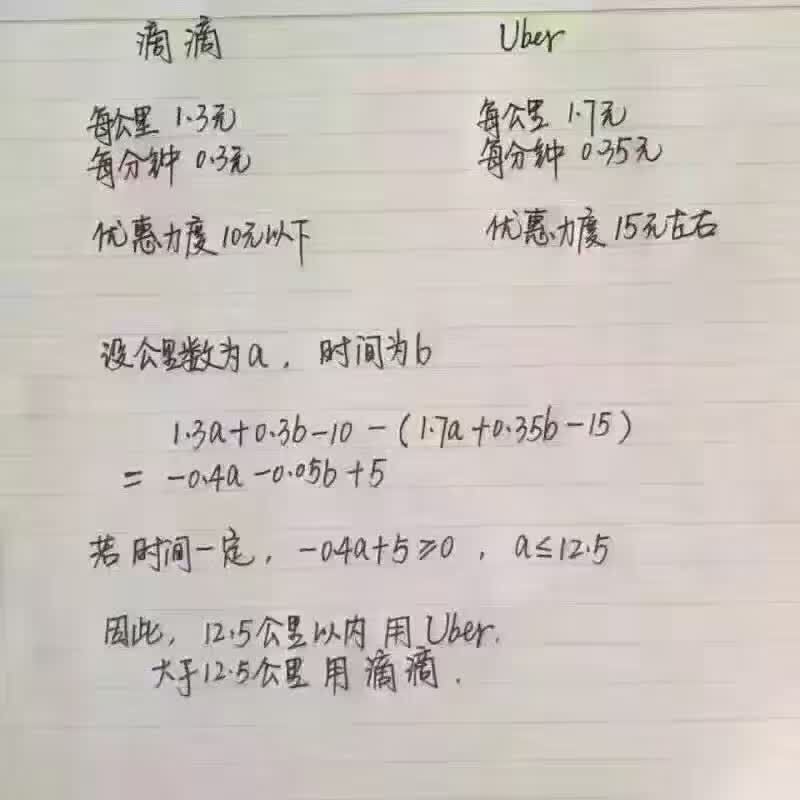 滴滴
Uber
每公里 1.3元
每分钟 0.3元
优惠力度10元以下
每公里 1.7元
每分钟 0.35元
优惠力度15元左右
设公里数为a，时间为b
1.3a+0.3b-10-(1.7a+0.35b-15)
= -0.4a-0.05b+5
若时间一定，-0.4a+5≥0，a≤12.5
因此，12.5公里以内 用Uber.
大于12.5公里 用 滴滴.